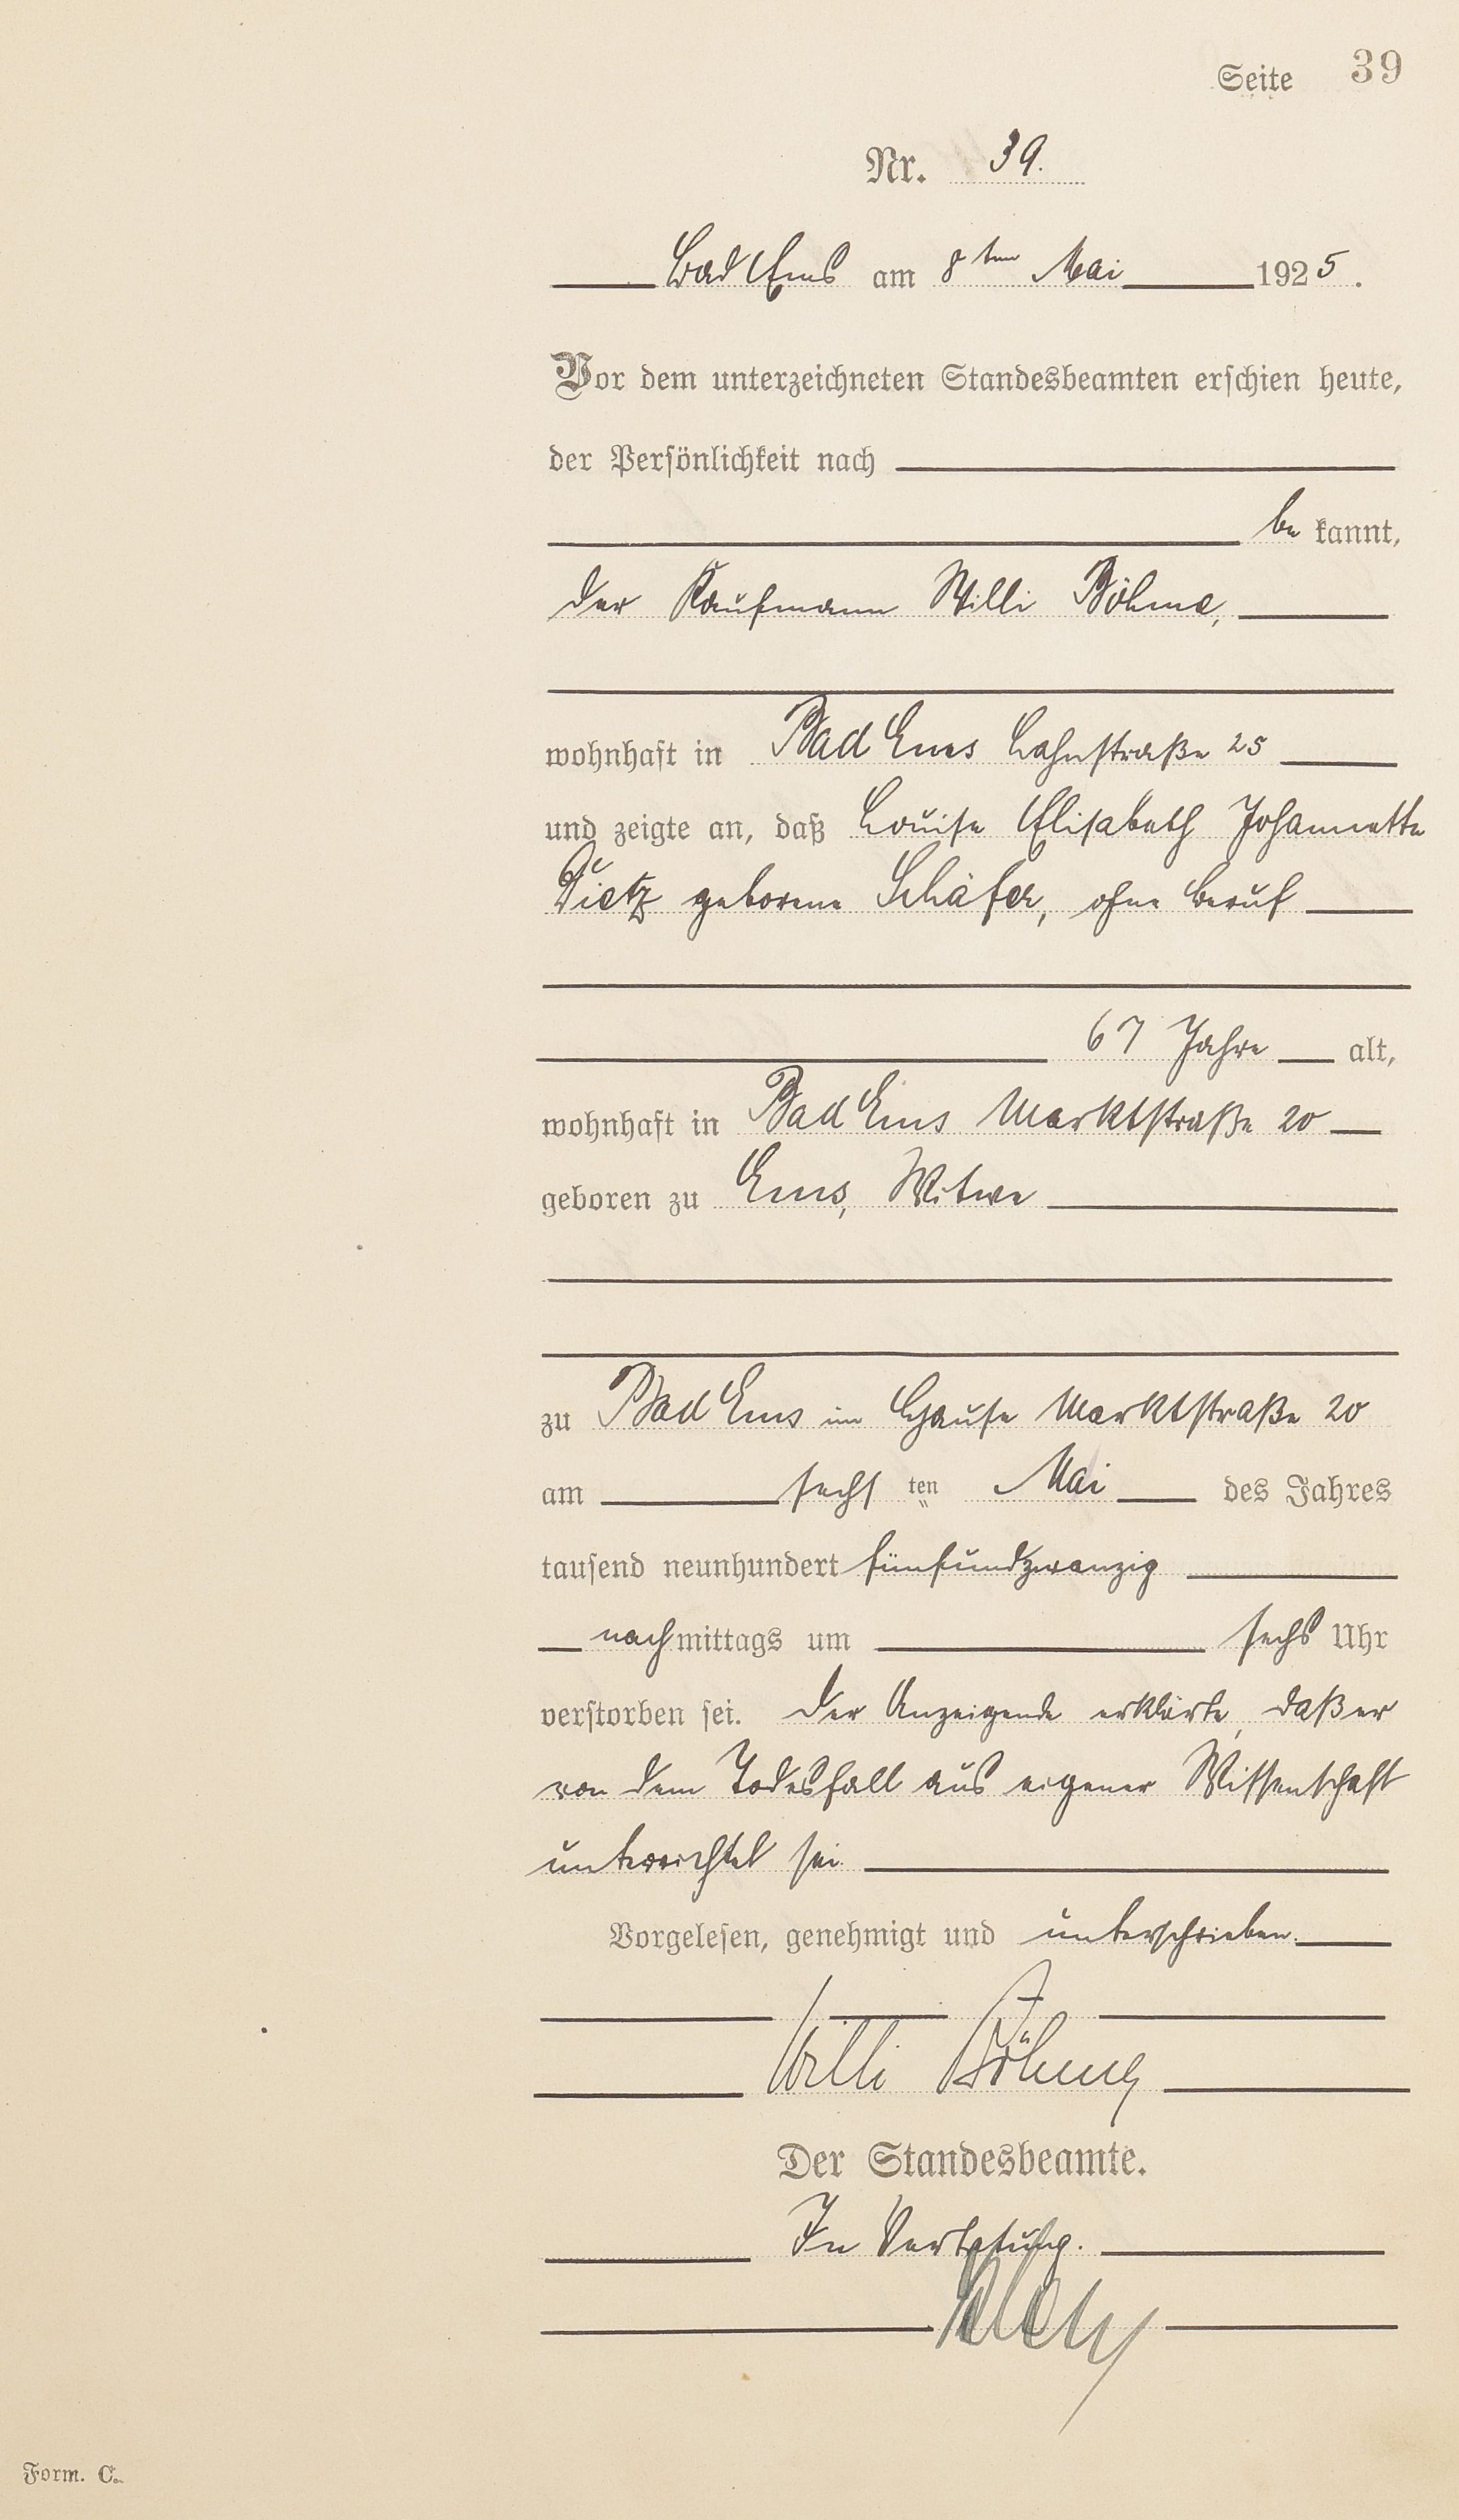 Seite 39
Nr. 39.
Bad Ems am 8ten Mai 1925.
Vor dem unterzeichneten Standesbeamten erschien heute,
der Persönlichkeit nach
be kannt,
der Kaufmann Willi Böhme,
wohnhaft in Bad Ems Lahnstraße 25
und zeigte an, daß Louise Elisabeth Johannette
Dietz geborene Schäfer, ohne Beruf
67 Jahre alt,
wohnhaft in Bad Ems Marktstraße 20
geboren zu Ems, Witwe
zu Bad Ems im Hause Marktstraße 20
am sechsten Mai des Jahres
tausend neunhundert fünfundzwanzig
nachmittags um sechs Uhr
verstorben sei. Der Anzeigende erklärte, daß er
von dem Todesfall aus eigener Wissenschaft
unterrichtet sei.
Vorgelesen, genehmigt und unterschrieben.
Willi Böhme
Der Standesbeamte.
In Vertretung.
Form. C.